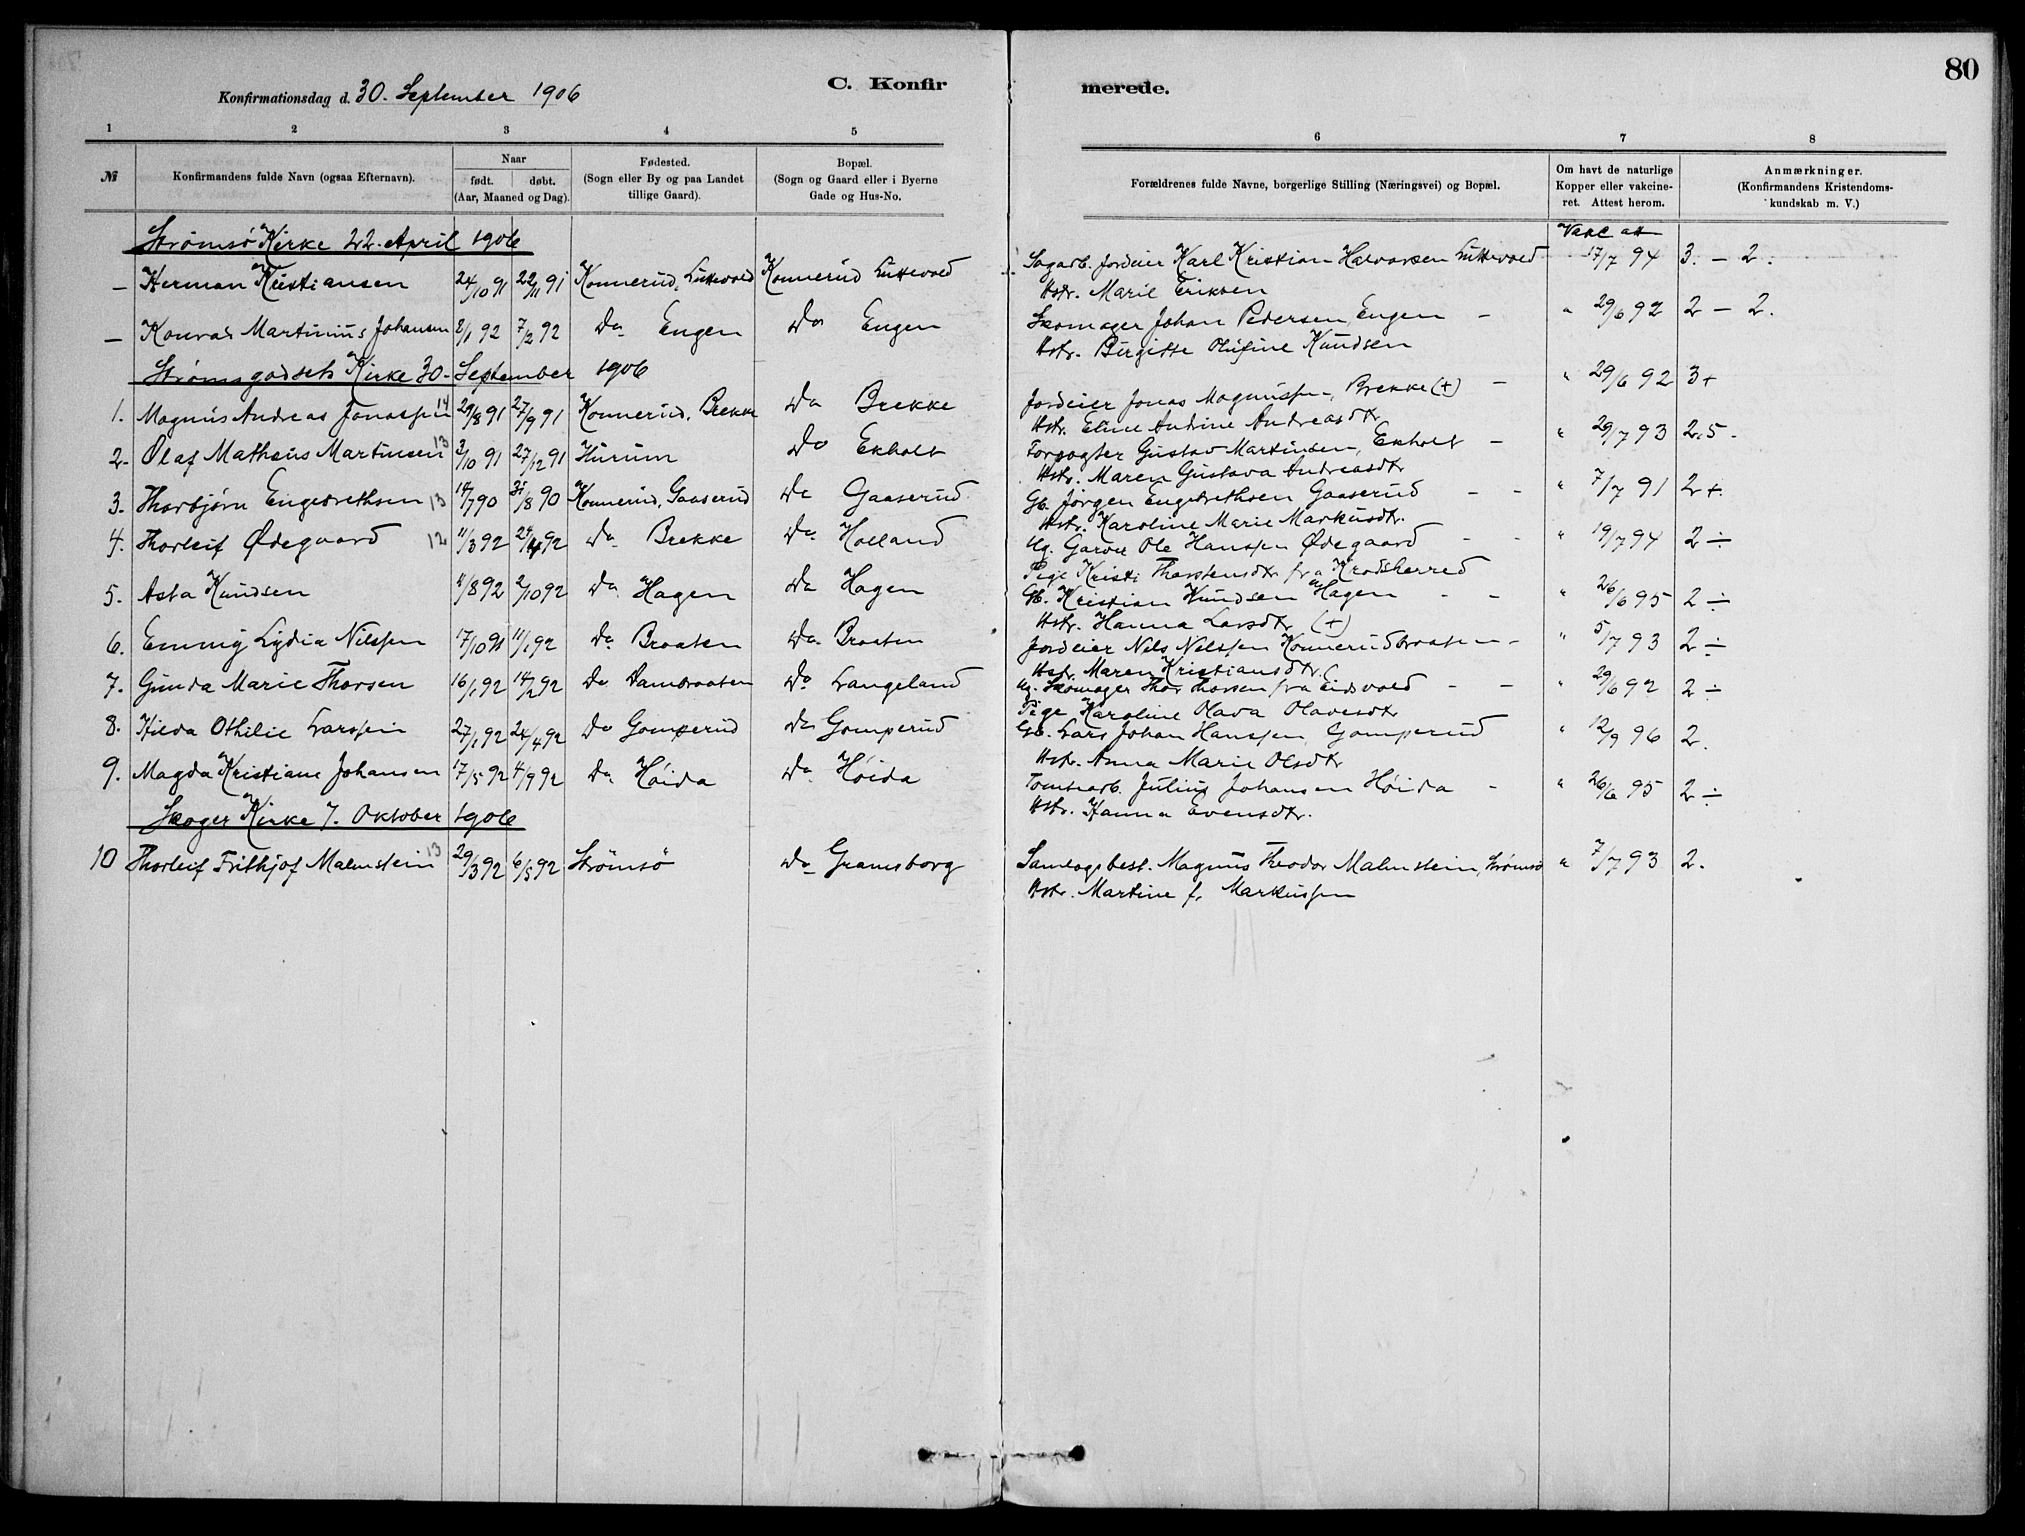 80
C. Konfirmerede.
Konfirmationsdag d. 30. September 1906
1 2 3 4 5 6 7 8
№
Konfirmandens fulde Navn (ogsaa Efternavn).
Naar
født. døbt.
(Aar, Maaned og Dag).
Fødested.
(Sogn eller By og paa Landet
tillige Gaard).
Bopæl.
(Sogn og Gaard eller i Byerne
Gade og Hus-No.
Forældrenes fulde Navne, borgerlige Stilling (Næringsvei) og Bopæl.
Om havt de naturlige
Kopper eller vakcine-
ret. Attest herom.
Anmærkninger.
(Konfirmandens Kristendoms-
kundskab m. V.)
Strømsø Kirke 22. April 1906
Vakc att
– Herman Kristiansen 24/10 91 22/11 91 Konnerud, Luttevold Konnerud Luttevold Sagarb. Jordeier Karl Kristian Halvorsen Luttevold 17/7 94 3. – 2.
Hstr. Marie Eriksen
– Konrad Martinius Johansen 8/1 92 7/2 92 Do Engen Do Engen Skomager Johan Pedersen, Engen – " 29/6 92 2 – 2.
Hstr. Birgitte Olufine Knudsen
Strømsgodsets Kirke 30. September 1906
1. Magnus Andreas Jonassen 14 29/8 91 27/9 91 Konnerud, Brekke Do Brekke Jordeier Jonas Magnussen, Brekke (+) – " 29/6 92 3+
Hstr. Eline Andrine Andreasdtr
2. Olaf Mathæus Martinsen 13 3/10 91 27/12 91 Hurum Do Ekholt Forpagter Gustav Martinsen, Ekholt – " 29/7 93 2.5.
Hstr. Maren Gustava Andreasdtr
3. Thorbjørn Engebrethsen 13 14/7 90 31/8 90 Konnerud, Gaaserud Do Gaaserud Gb. Jørgen Engebrethsen Gaaserud – – " 7/7 91 2+.
Hstr. Karoline Marie Markusdtr.
4. Thorleif Ødegaard 12 11/3 92 24/4 92 Do Brekke Do Holland Ug. Garver Ole Hanssen Ødegaard – – " 19/7 94 2 ÷
Pige Kristi Thorstensdtr fra Krodsherred
5. Asta Knudsen 11/8 92 2/10 92 Do Hagen Do Hagen Gb. Kristian Knudsen Hagen – – " 26/6 95 2 ÷
Hstr. Hanna Larsdtr (+)
6. Emmy Lydia Nilssen 17/10 91 11/1 92 Do Braaten Do Braaten Jordeier Nils Nilssen Konnerudbraaten – " 5/7 93 2 ÷
Hstr. Maren Kristiansdtr (
7. Gunda Marie Thorsen 16/1 92 14/2 92 Do Dambraaten Do Langeland Ug. Skomager Thor Thorsen fra Eidsvold – – " 29/6 92 2 ÷
Pige Karoline Olava Olavesdtr
8. Hilda Othilie Larssen 27/1 92 24/4 92 Do Gomperud Do Gomperud Gb. Lars Johan Hanssen, Gomperud " 12/9 96 2.
Hstr. Anna Marie Olsdtr
9. Magda Kristiane Johansen 17/5 92 4/9 92 Do Høida Do Høida Tomtearb. Julius Johansen Høida – " 26/6 95 2 ÷
Hstr. Hanna Evensdtr.
Skoger Kirke 7. Oktober 1906
10 Thorleif Frithjof Malmstein 13 29/3 92 6/5 92 Strømsø Do Gramsborg Samlagsbest. Magnus Theodor Malmstein, Strømsø " 7/7 93 2.
Hstr. Martine f. Markussen